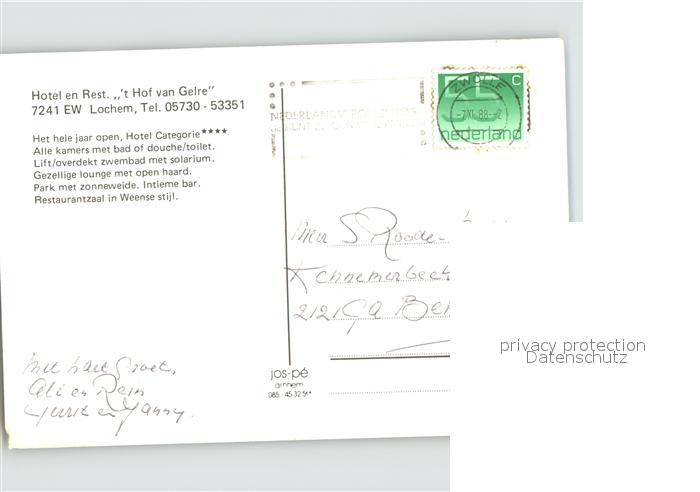 Hotel en Rest. ,,'t Hof van Gelre"
7241 EW Lochem, Tel. 05730 - 53351
Het hele jaar open, Hotel Categorie****
Alle kamers met bad of douche/toilet.
Lift/overdekt zwembad met solarium.
Gezellige lounge met open haard.
Park met zonneweide. Intieme bar.
Restaurantzaal in Weense stijl.
ZWOLLE
c
nederland
Mevr S Roode-
2121 GA Be
Met hart. Groet,
Ali en Rein
Gerrit en Janny.
jos-pé
arnhem
085 - 45 32 51*
privacy protection
Datenschutz